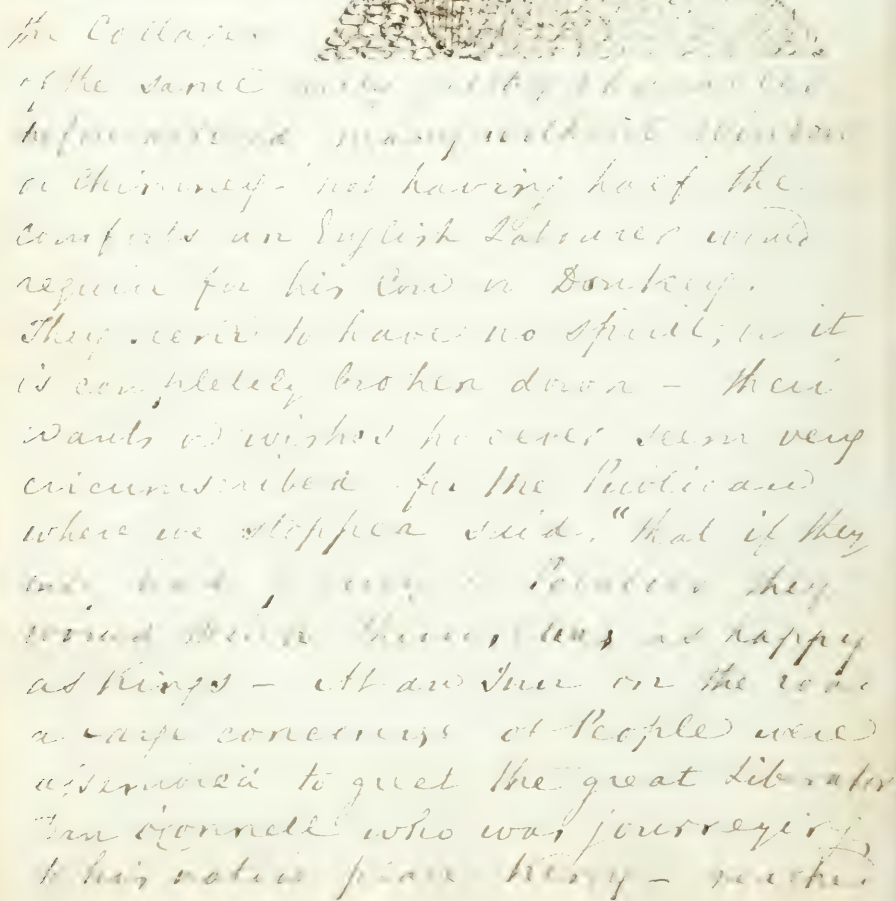 the Cottages
of the same
before many without Window
or Chimney - not having half the
comforts an English Labourer would
require for his Cow or Donkey.
They seem to have no spirit, or it
is completely broken down - their
wants or wishes however seem very
circumscribed for the Publican
where we stopped said. "that if they
only had Potatoes they
would think themselves as happy
as Kings - At an Inn on the road
a large concourse of People were
assembled to greet the great Liberator
Dan O'Connell who was journeying
to his native place Kerry -